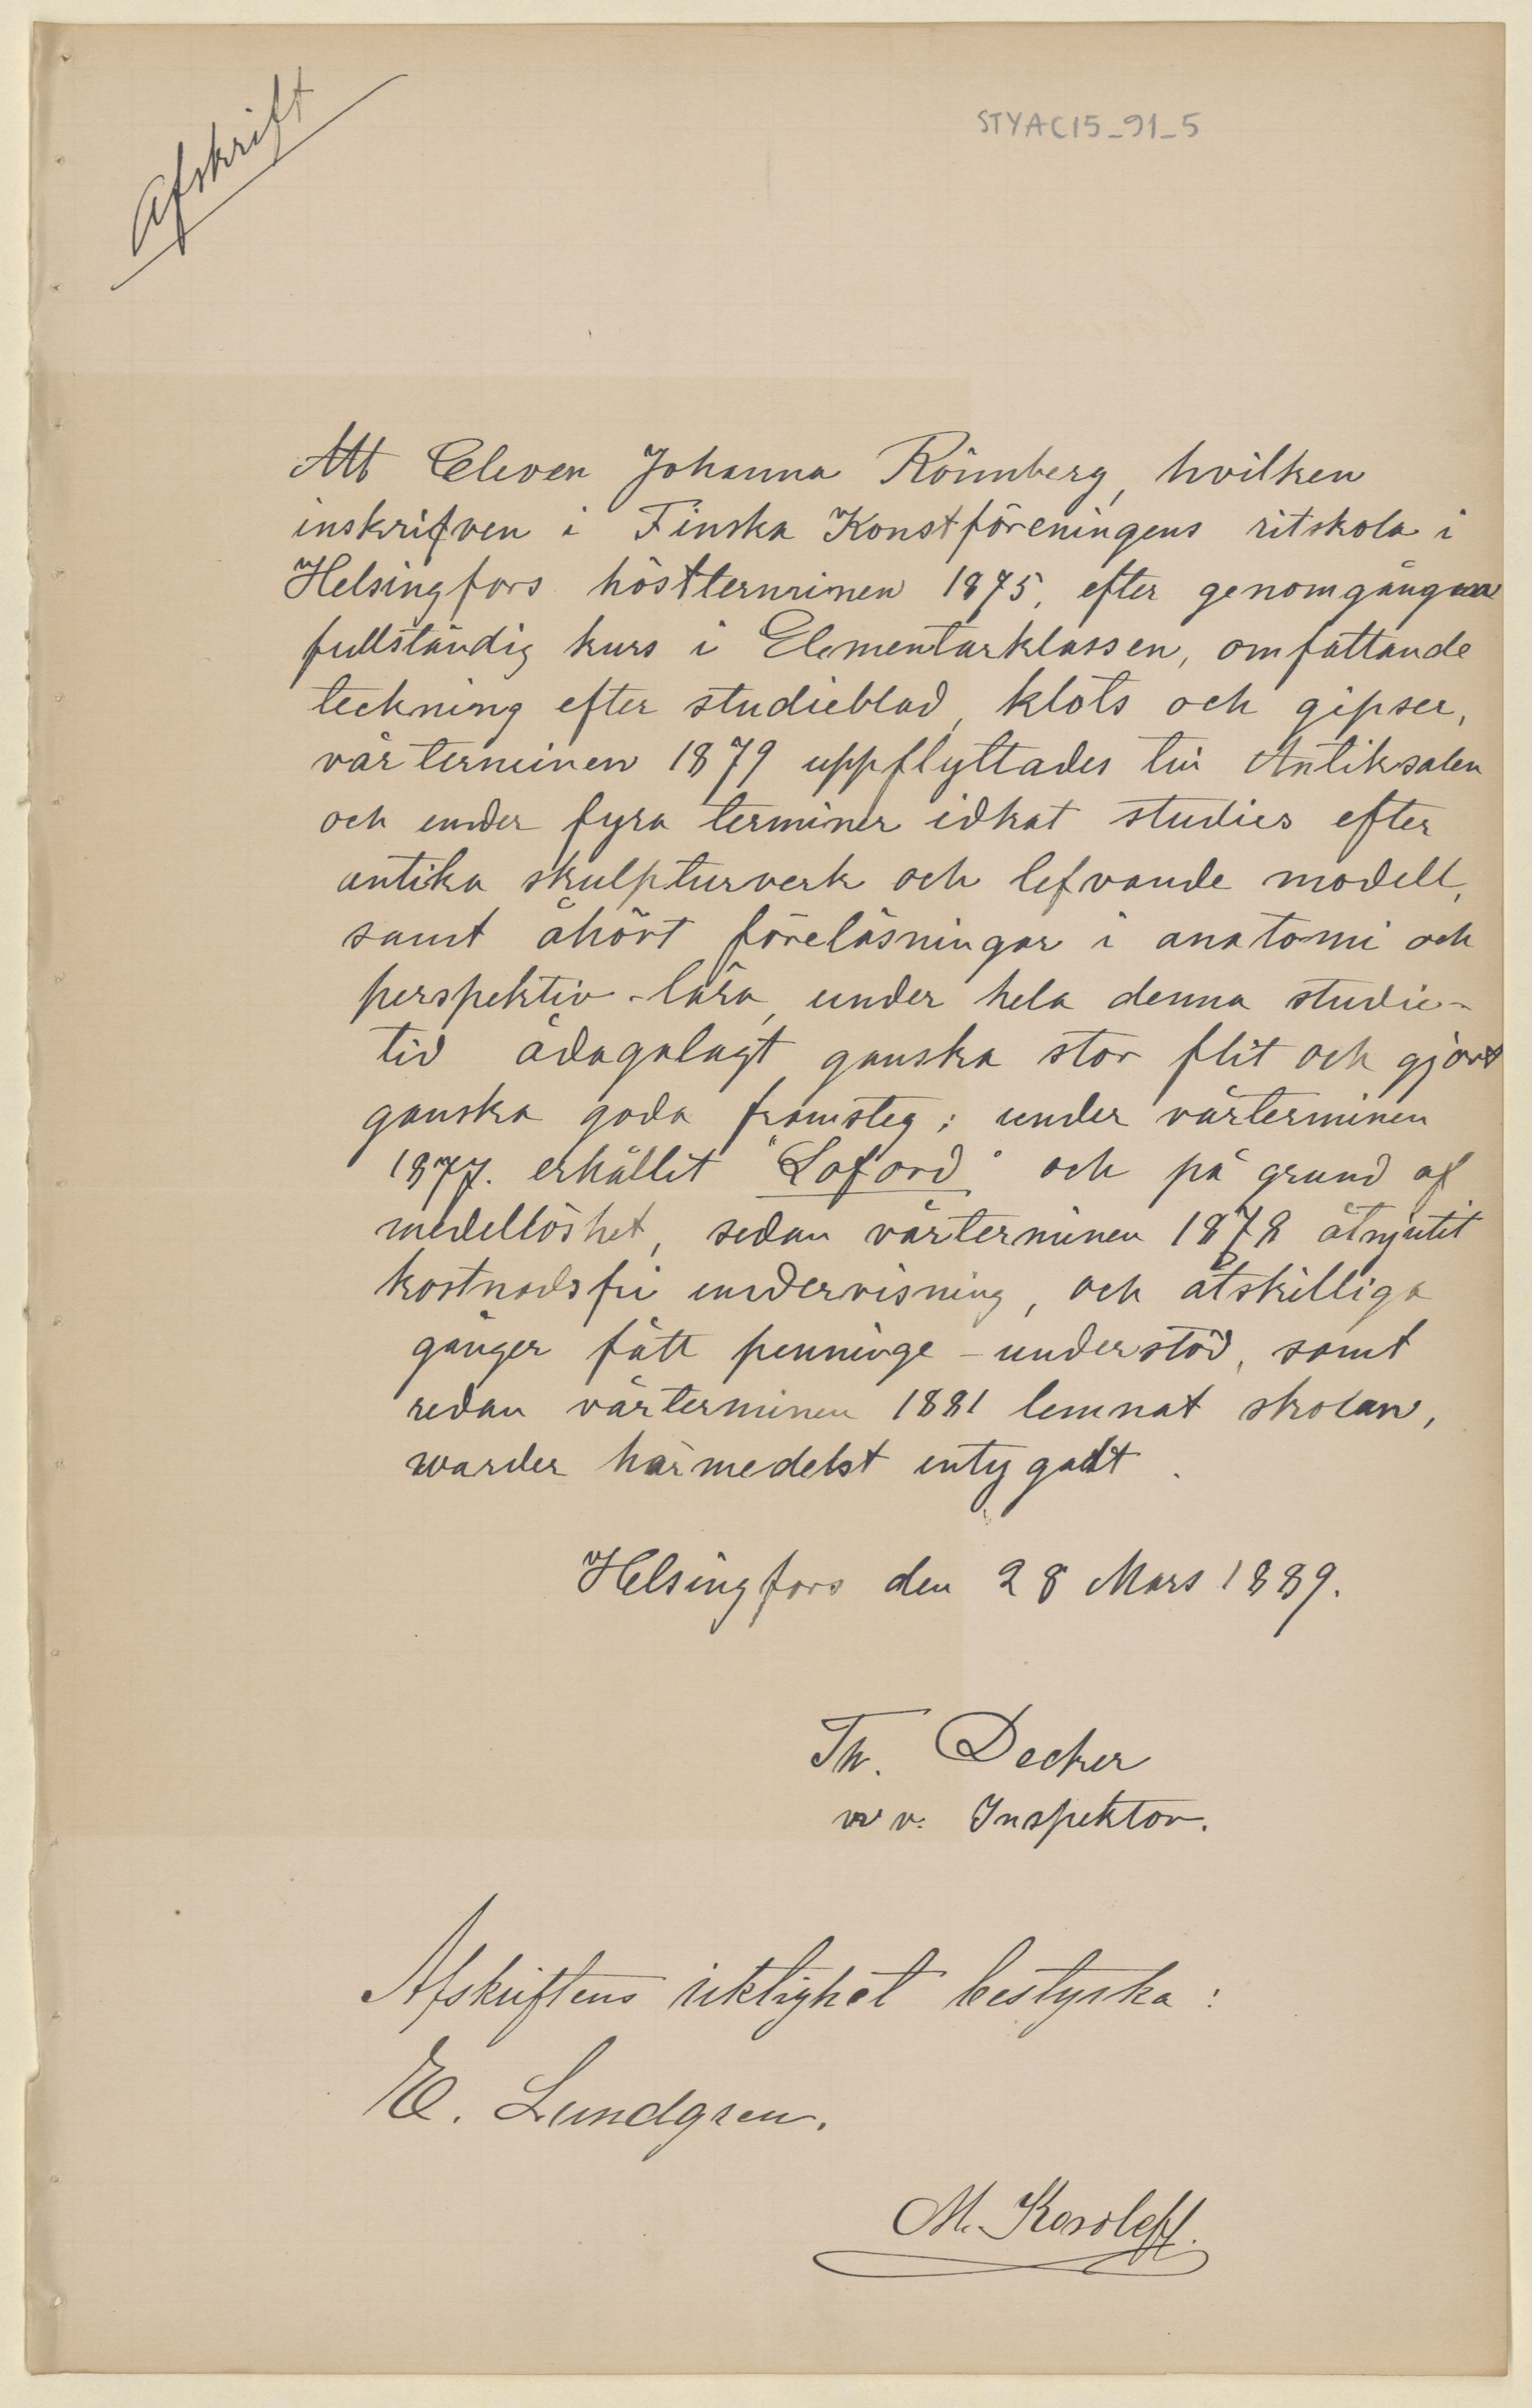 Afskrift
STYAC15_91_5
Att Eleven Johanna Rönnberg, hvilken
inskrifven i Finska Konstföreningens ritskola i
Helsingfors höstterminen 1875, efter genomgången
fullständig kurs i Elementarklassen, omfattande
teckning efter studieblad, klots och gipser,
vårterminen 1879 uppflyttades till Antiksalen
och under fyra terminer idkat studier efter
antika skulpturverk och lefvande modell,
samt åhört föreläsningar i anatomi och
perspektiv-lära, under hela denna studie-
tid ådagalagt ganska stor flit och gjort
ganska goda framsteg; under vårterminen
1877. erhållit "Loford" och på grund af
medellöshet, sedan vårterminen 1878 åtnjutit
kostnadsfri undervisning, och åtskilliga
gånger fått penninge-understöd, samt
redan vårterminen 1881 lemnat skolan,
warder härmedelst intygadt.
Helsingfors den 28 Mars 1889.
Th. Decker
v. Inspektor.
Afskriftens riktighet bestyrka:
E. Lundgren.
M. Kosoleff.